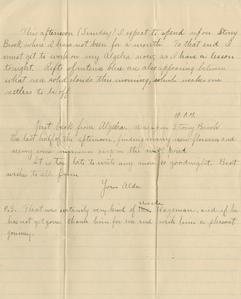 This afternoon (Sunday) I expect to spend upon Stony
Brook where I have not been for a month. To that end I
must get to work on my Algebra now, as I have a lesson
tonight. Rifts of intense blue are also opening between
what was solid clouds this morning, which makes me
restless to be off.
10 P.M.
Just back from Algebra. Was upon Stony Brook
the last half of the afternoon, finding many new flowers and
seeing some
It is too late to write any more so goodnight. Best
wishes to all from
Yours Alda
P.S. That was certainly very kind of Uncle Hageman, and if he
has not gone thank him for me and wish him a pleasant
journey.